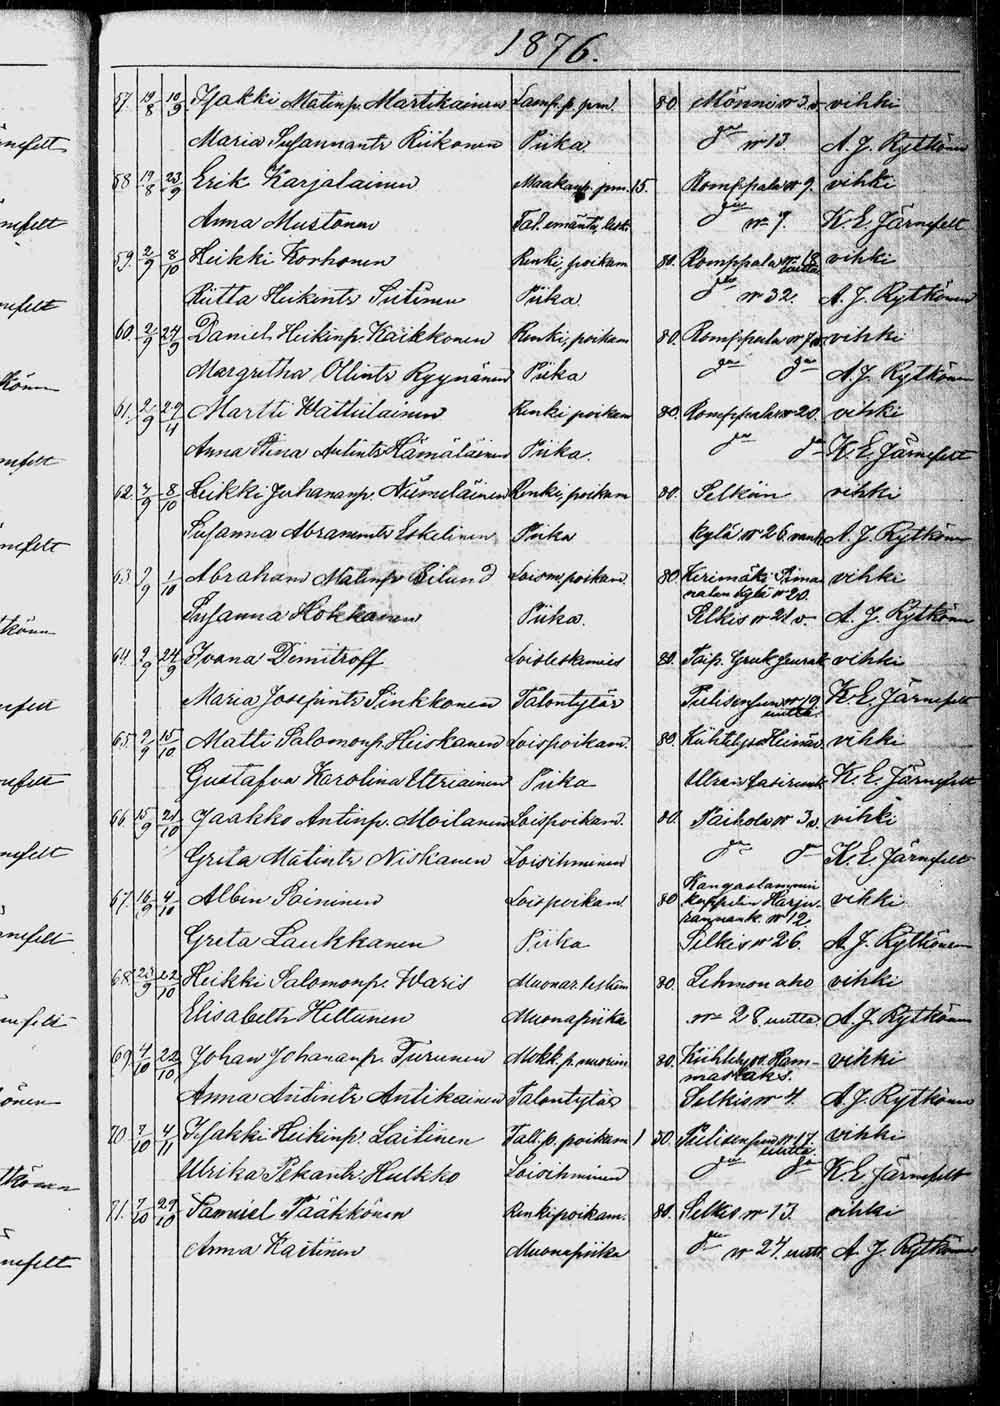 1876.
57. 19/8 10/9 Isakki Matinp. Martikainen Lamp. p. pm. 80. Mönni № 3. v. vihki
Maria Susannantr Riikonen Piika do № 13. A. J. Rytkönen
58 19/8 23/9 Erik Karjalainen Maakaup. pm. 15. Romppala № 9. vihki
Anna Mustonen Tal. emäntä, leski do № 9. K. E. Järnefelt
59. 2/9 8/10 Heikki Korhonen Renki, poikam 80. Romppala № 18 uutta vihki
Riitta Heikintr Sutinen Piika do № 32. A. J. Rytkönen
60. 2/9 24/9 Daniel Heikinp. Kaikkonen Renki, poikam 80. Romppala № vihki
Margretha Ollintr Ryynänen Piika do do A. J. Rytkönen
61. 2/9 Martti Wattulainen Renki poikam 80. Romppala № 20. vihki
Anna Stina Antintr Hämäläinen Piika. do do K. E. Järnefelt
62. 7/9 8/10 Heikki Johananp. Niemeläinen Renki, poikam 80. Selkän vihki
Susanna Abramintr Eskelinen Piika kylä № 26. A. J. Rytkönen
63 9/9 1/10 Abraham Matinp Eilund Loism. poikam. 80. Kerimäki vihki
kylä № 20.
Susanna Hokkanen Piika. Selkis № 21 v. A. J. Rytkönen
64. 9/9 24/9 Ivana Demitroff Loisleskimies 80. Taip. vihki
Maria Josefintr Sinkkonen Talontytär № 19 uutta K. E. Järnefelt
65. 9/9 15/10 Matti Salomonp. Heiskanen Loispoikam. 80. Kiihtelys Heinäv. vihki
Gustafva Karolina Utriainen Piika K. E. Järnefelt
66. 15/9 21/10 Jaakko Antinp. Moilanen Loispoikam. 80. Paihola № 3 v. vihki
Greta Matintr Niskanen Loisihminen do do K. E. Järnefelt
67. 16/9 4/10 Albin Loispoikam 80 Kangaslammin kappelin Harju-rannank. № 12. vihki
Greta Laukkanen Piika Selkis № 26. A. J. Rytkönen
68. 23/9 22/10 Heikki Salomonp. Waris Muonar. leskim 80. Lehmonaho vihki
Elisabeth Hiltunen Muonapiika № 28 uutta. A. J. Rytkönen
69. 4/10 22/10 Johan Johananp. Turunen Mökk. p. nuorim. 80. Kiihtelys Ham-maslaks. vihki
Anna Antintr Antikainen Talontytär Selkis № 4. A. J. Rytkönen
70. 7/10 4/11 Isakki Heikinp. Laitinen Tall. p. poikam 1 30. № 17. uutta. vihki
Ulrika Pekantr Hulkko Loisihminen do do K. E. Järnefelt
71. 7/10 29/10 Samuel Pääkkönen Renkipoikam. 80. Selkis № 13. vihki
Anna Kaitinen Muonapiika do № 24. uutt. A. J. Rytkönen